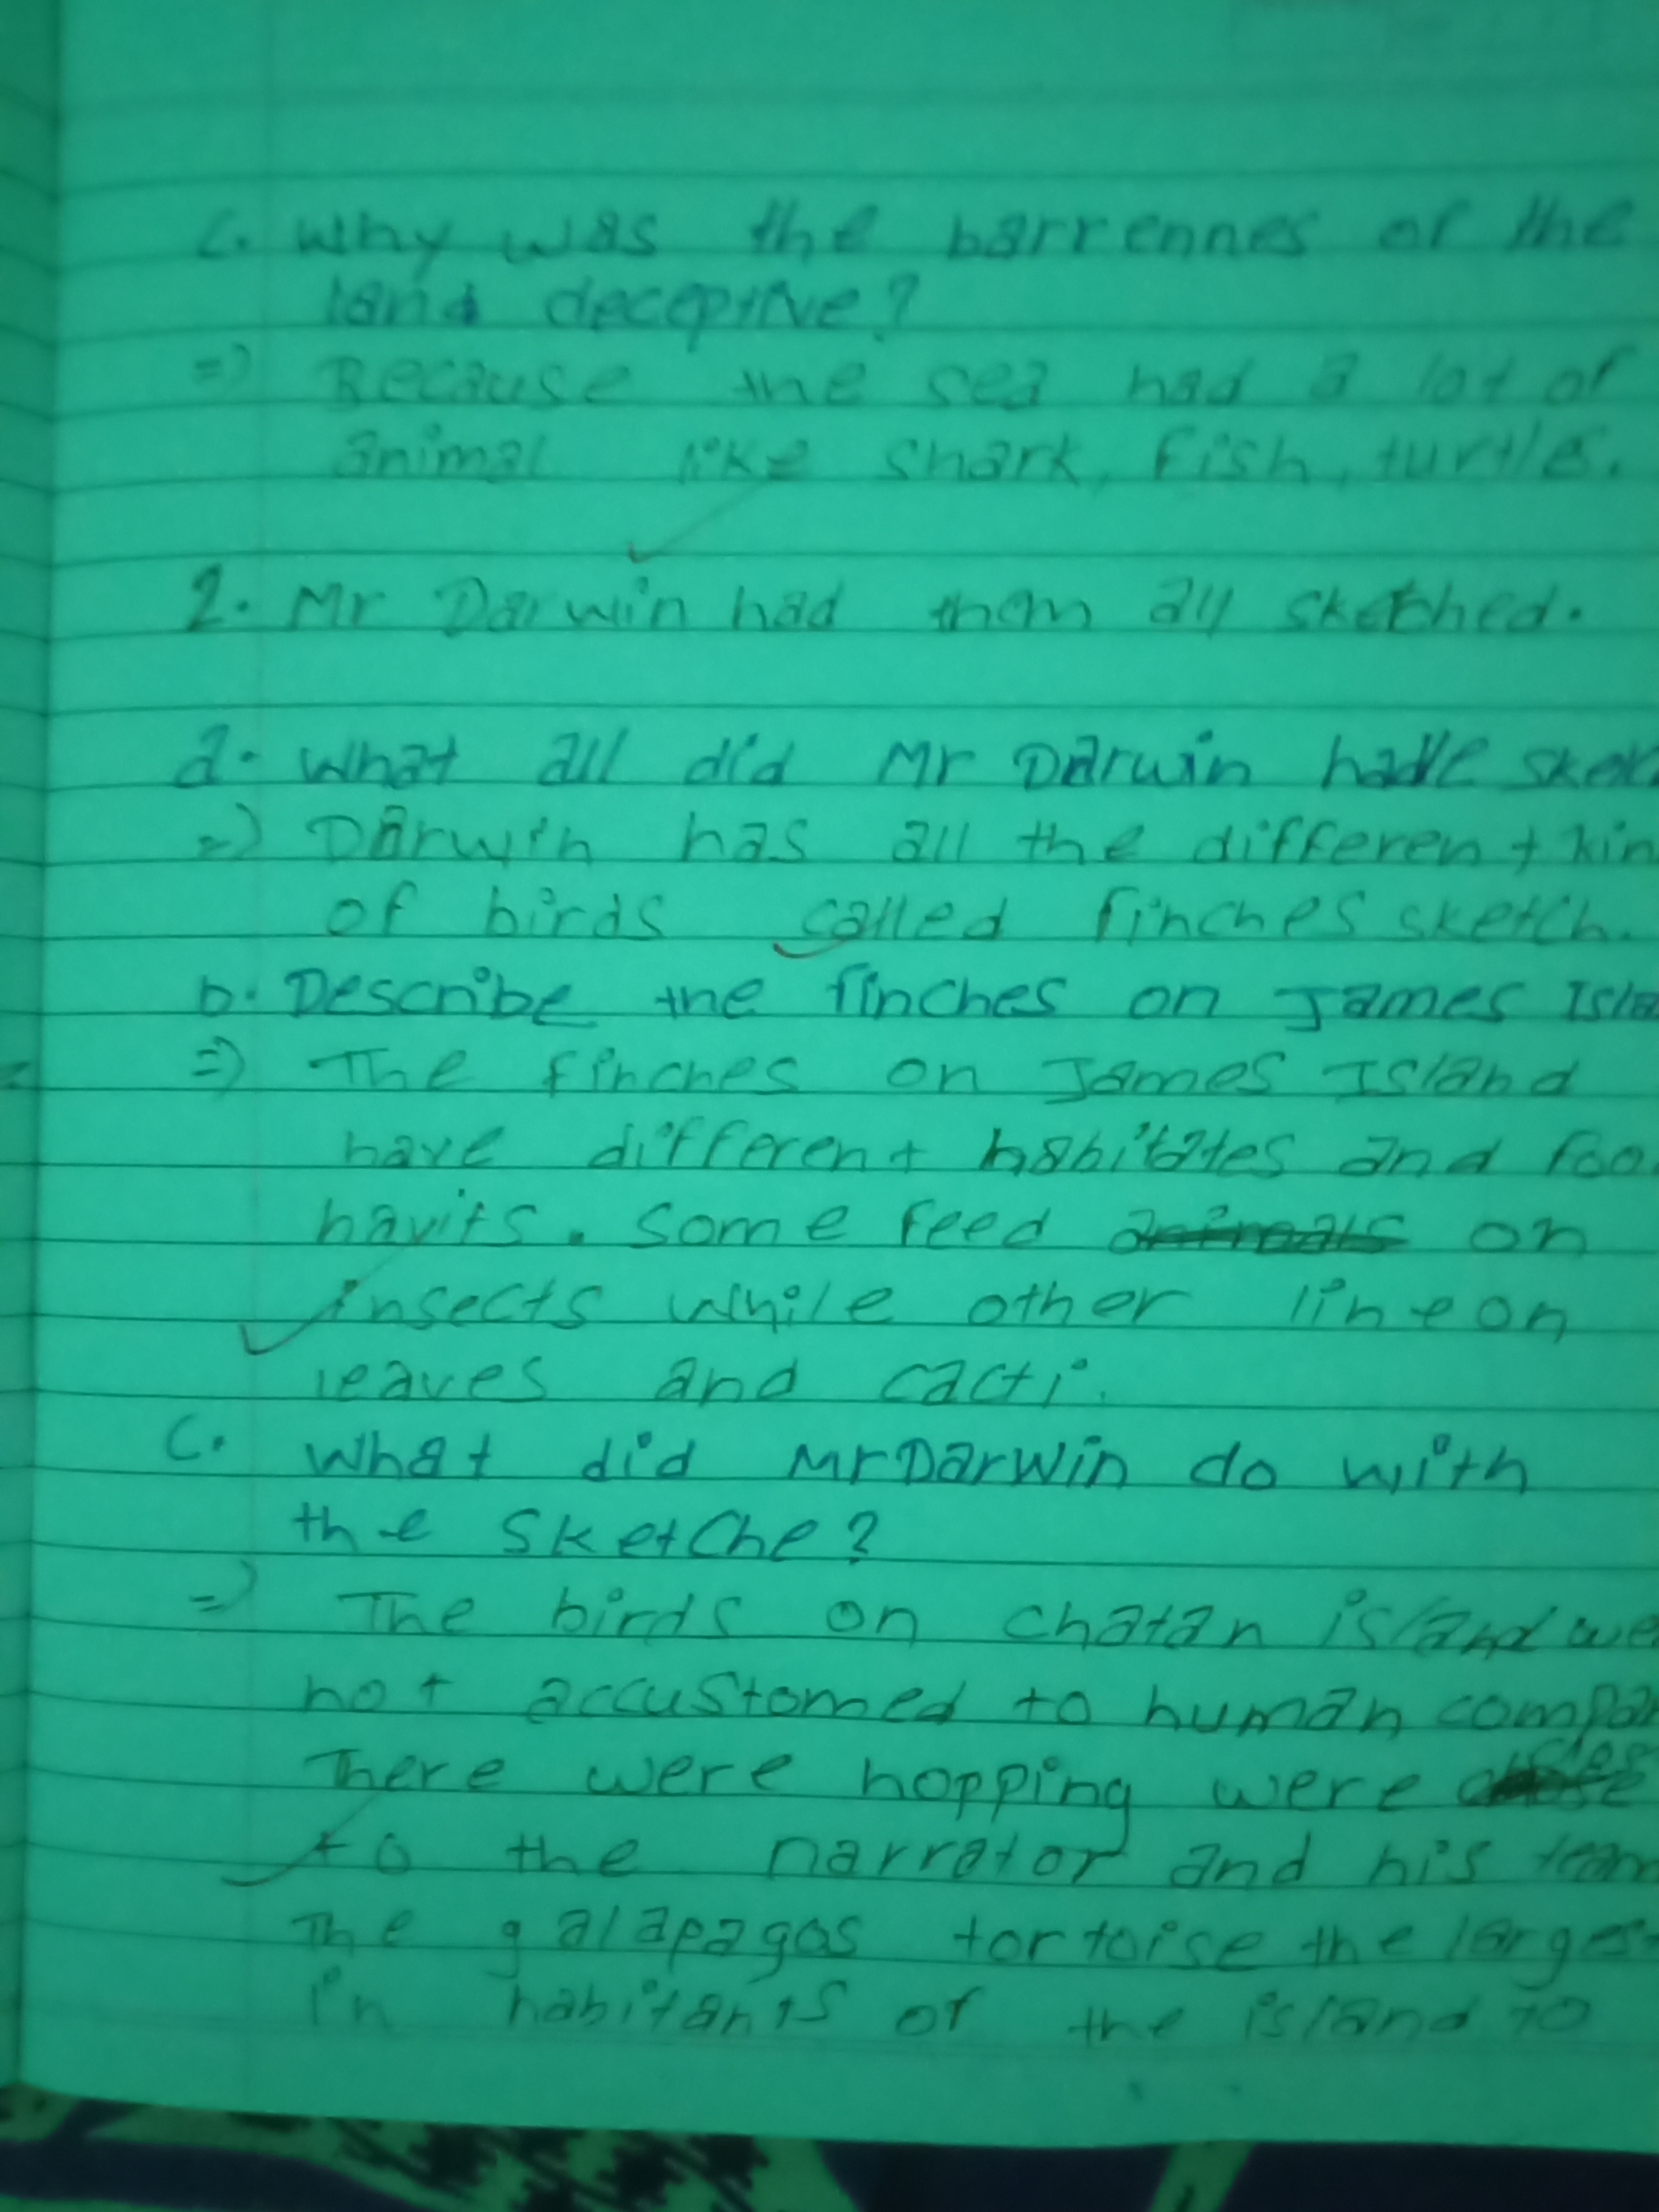 c. Why was the barrennes of the
land deceptive?
=> Because the sea had a lot of
animal like shark, fish, turtle.
2. Mr Darwin had them all sketched.
a. What all did Mr Darwin have
=> Darwin has all the different kin
of birds called finches sketch.
b. Describe the finches on James Isla
=> The finches on James Island
have different habitates and foo
havits. Some feed on
insects while other line on
leaves and cacti.
c. What did Mr Darwin do with
the sketche?
=> The birds on chatan island we
not accustomed to human compan
There were hopping were
to the narrator and his team
The galapagos tortoise the largest
in habitants of the island to